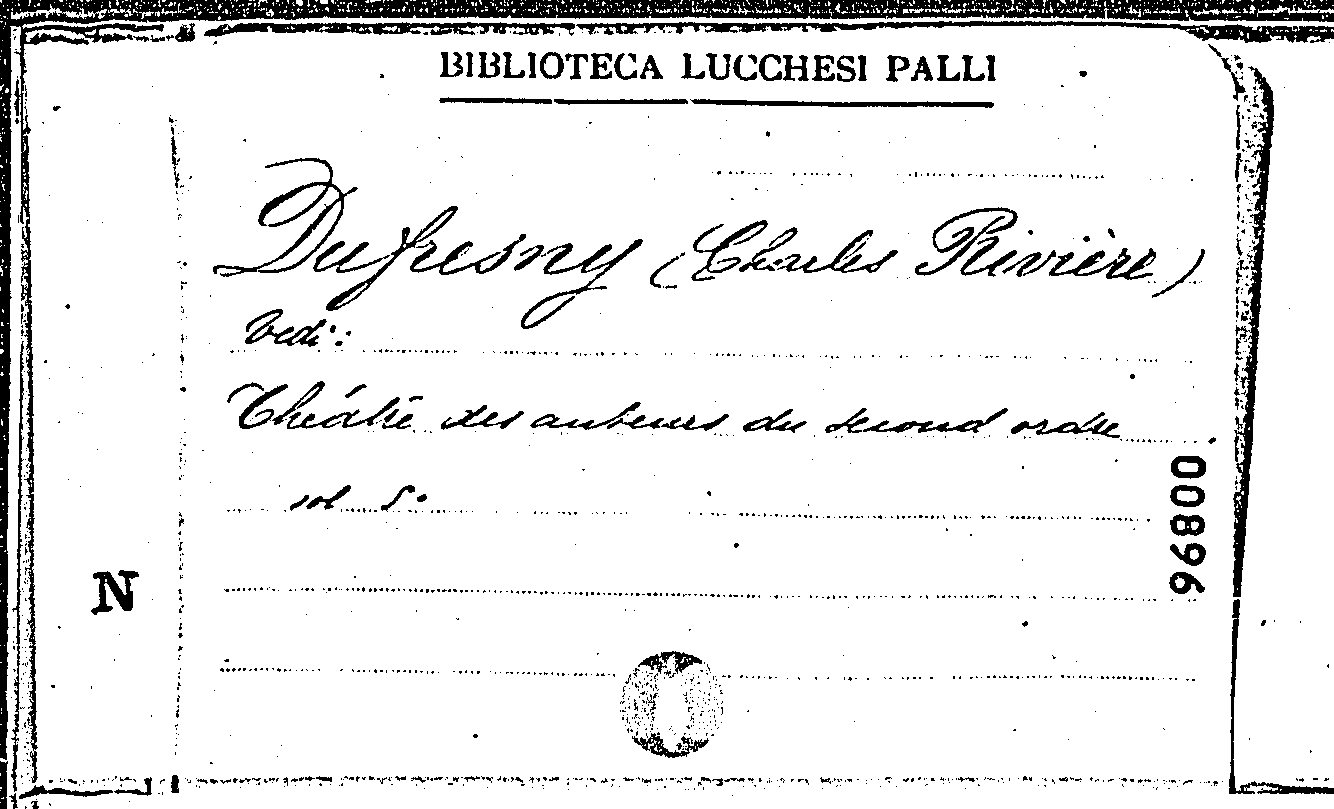 BIBLIOTECA LUCCHESI PALLI
Dufresny (Charles Rivière)
Vedi:
Théâtre des auteurs du second ordre
vol 5°
00896
N